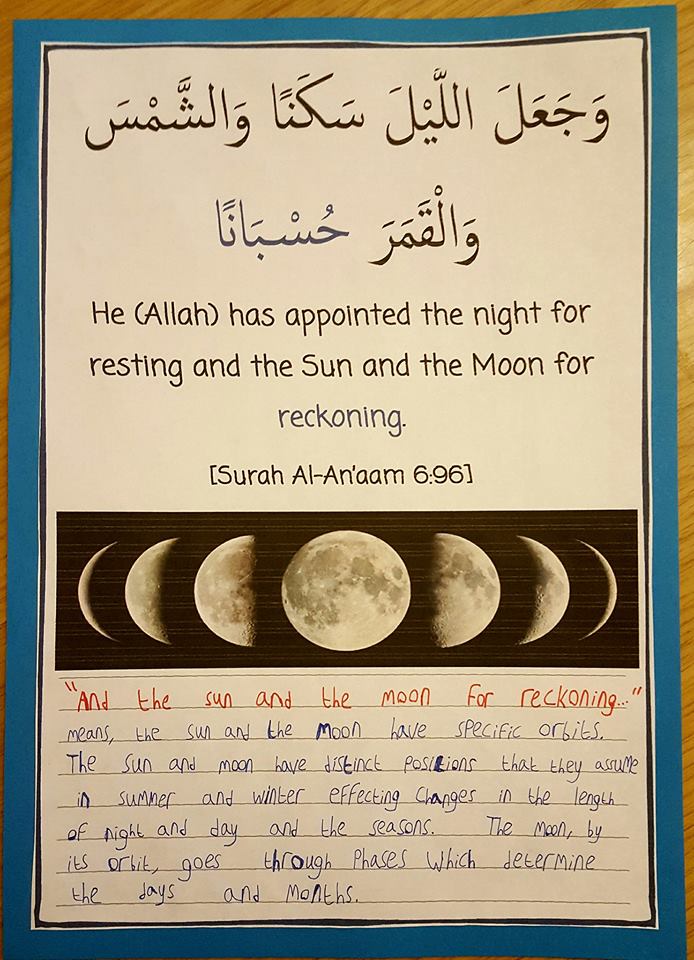 وَجَعَلَ اللَّيْلَ سَكَنًا وَالشَّمْسَ
وَالْقَمَرَ حُسْبَانًا
He (Allah) has appointed the night for
resting and the Sun and the Moon for
reckoning.
[Surah Al-An'aam 6:96]
"And the sun and the moon for reckoning..."
means, the sun and the Moon have specific orbits.
The sun and moon have distinct positions that they assume
in summer and winter effecting Changes in the length
of night and day and the seasons. The Moon, by
its orbit, goes through Phases Which determine
the days and Months.